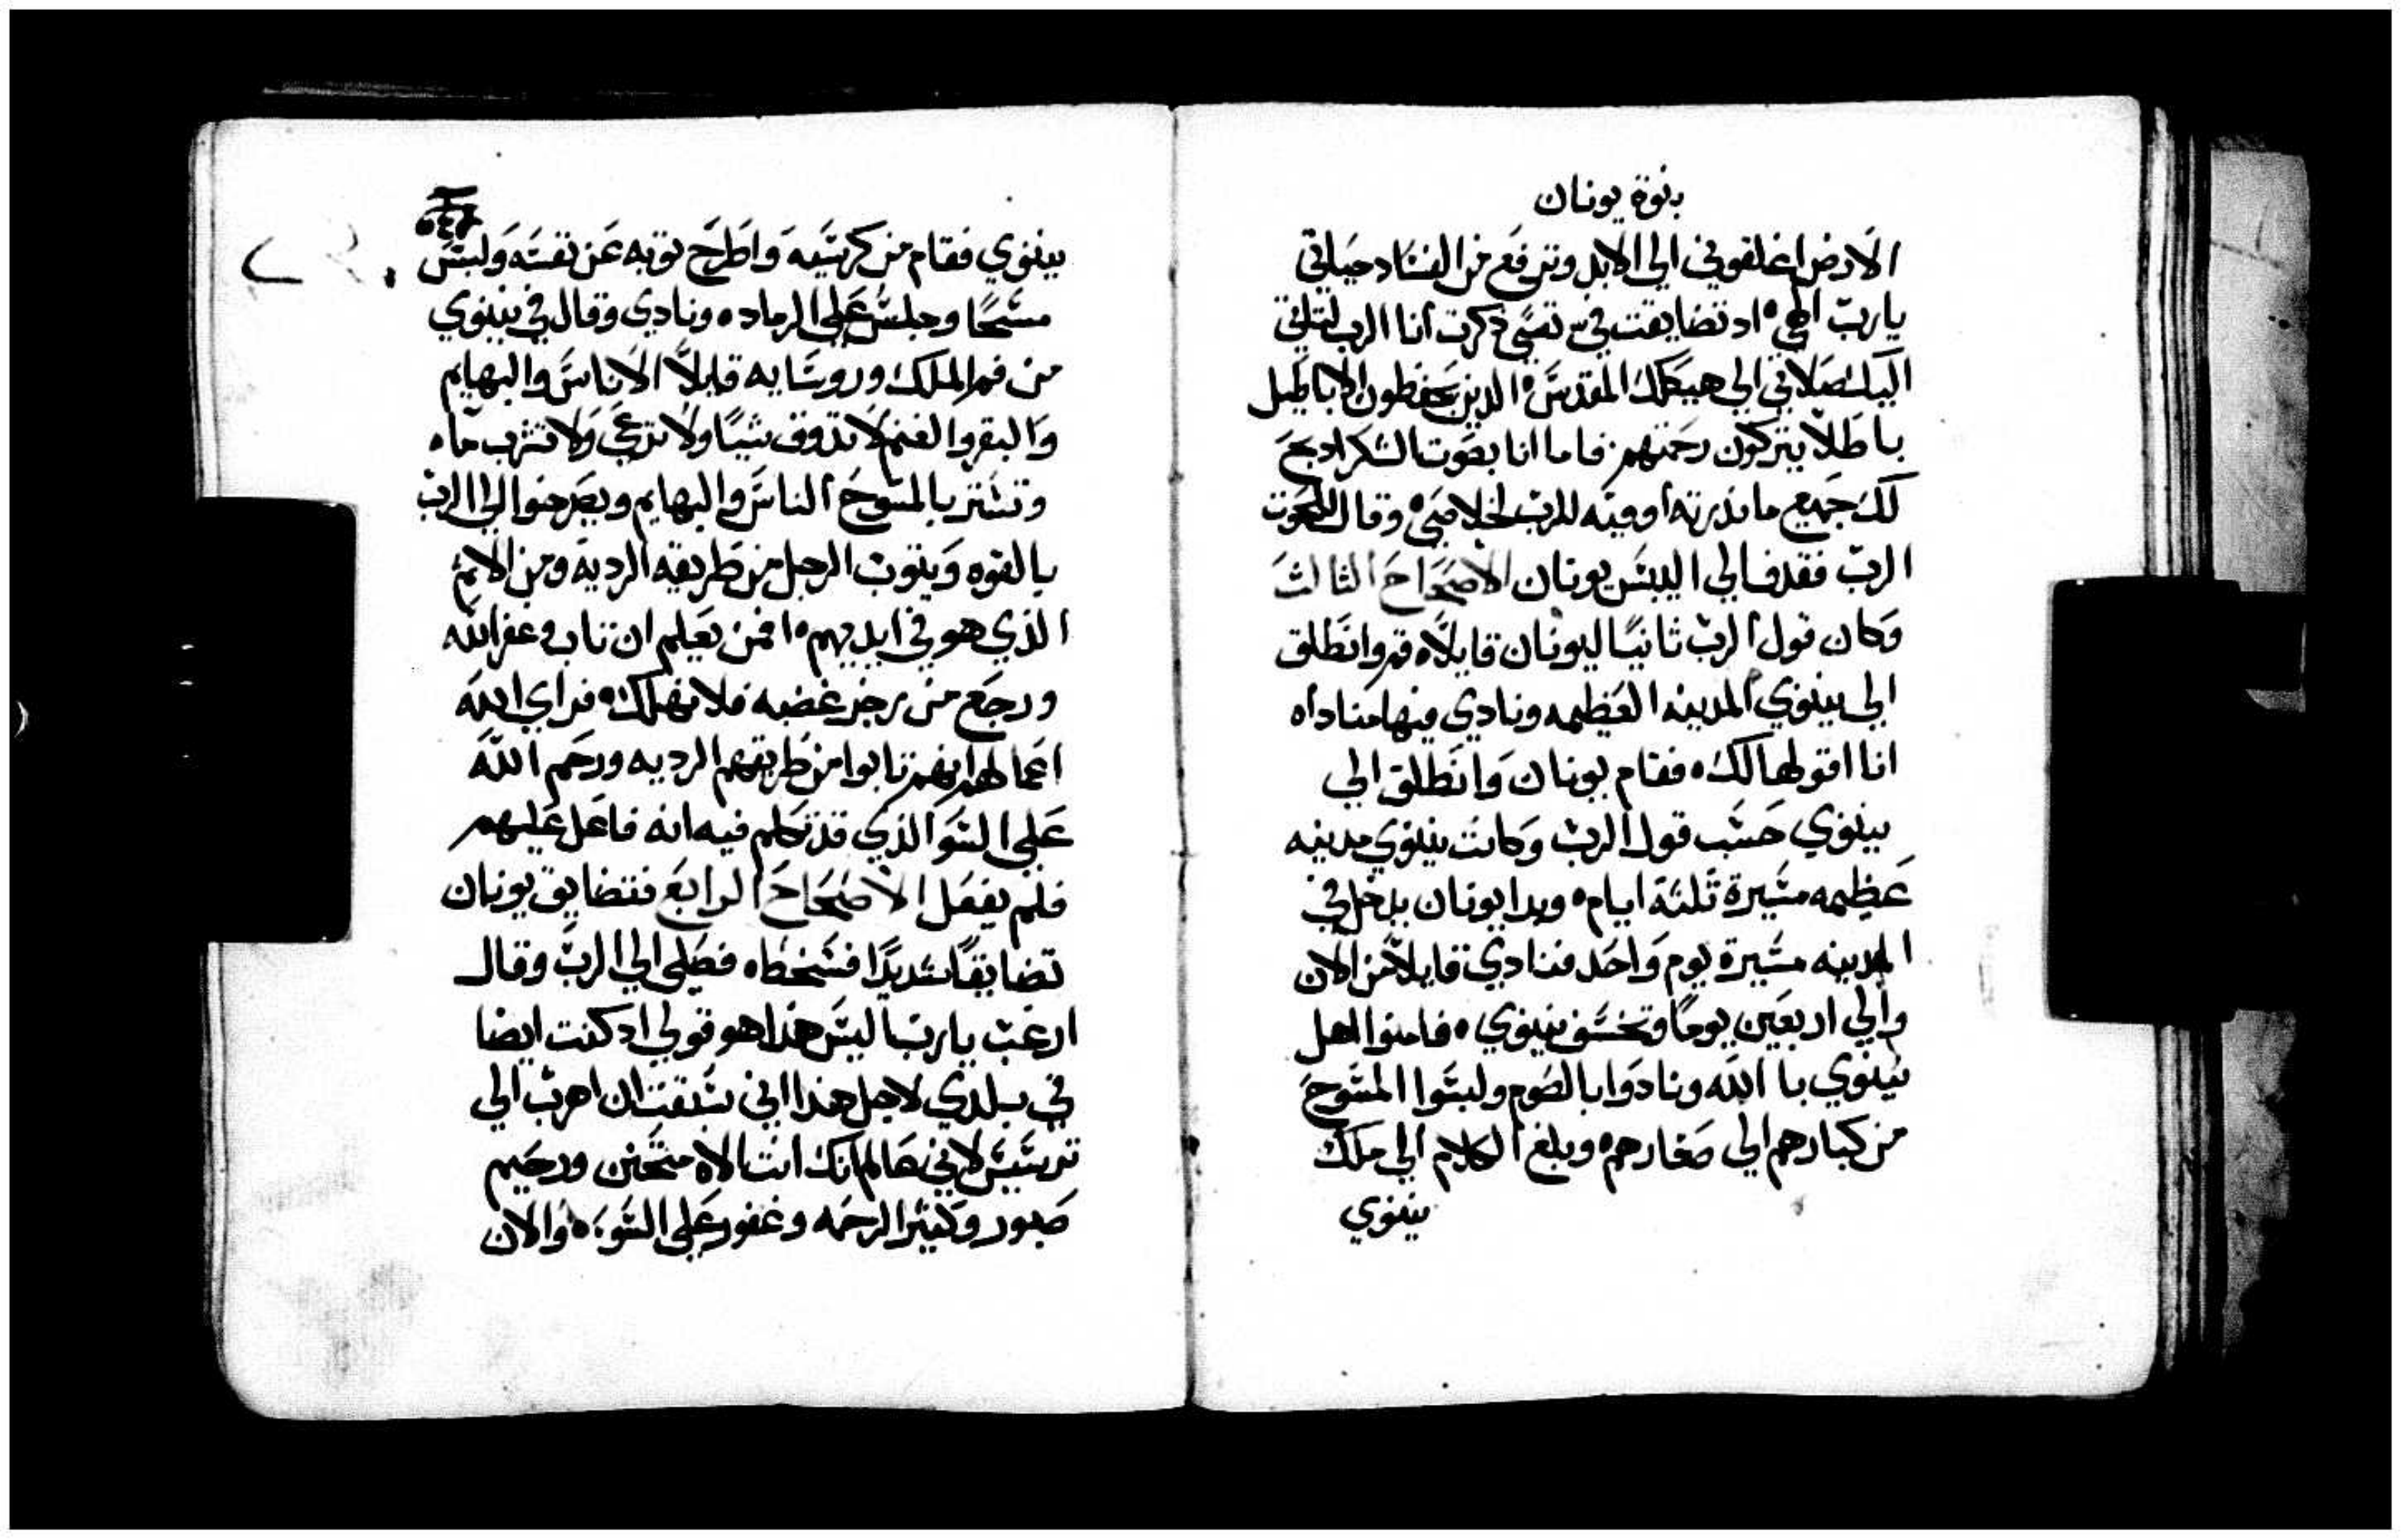 بنوة يونان
الارض اغلقوني الي الابد وترفع من الفساد حياتي
يارب الهي ه اد تضايقت في نفسي دكرت انا الرب لتاتي
اليك صلاتي الي هيكلك المقدس ه الدين يحفظون الاباطيل
باطلا يتركون رحمتهم فاما انا بصوت الشكر ادبح
لك جميع ما نذرته اوفيه للرب لخلاصي ه وقال للحوت
الرب فقدف الي اليبس يونان الاصحاح الثالث
وكان قول الرب ثانيا ليونان قايلا ه قم وانطلق
الي نينوي المدينه العظيمه ونادي فيها مناداه
انا اقولها لك ه فقام يونان وانطلق الي
نينوي حسب قول الرب وكانت نينوي مدينه
عظيمه مسيرة ثلثة ايام ه وبدا يونان يدخل في
المدينه مسيرة يوم واحد فنادي قايلا من الان
والي اربعين يوما وتخسف نينوي ه فامنوا اهل
نينوي با الله ونادوا بالصوم ولبسوا المسوح
من كبارهم الي صغارهم ه وبلغ الكلام الي ملك
نينوي
نينوي فقام من كرسيه واطرح توبه عن نفسه ولبس
مسحا وجلس علي الرماد ه ونادي وقال في نينوي
من فم الملك وروسايه قايلا الاناس والبهايم
والبقر والغنم لا تدوق شيا ولا ترعي ولا تشرب ماه
وتستتر بالمسوح الناس والبهايم ويصرخوا الي الرب
بالقوه ويتوب الرجل من طريقه الرديه ومن الاثم
الذي هو في ايديهم ه افمن يعلم ان تاب وغفر الله
ورجع من رجز غضبه فلا نهلك ه فراي الله
اعمالهم انهم تابوا من طريقهم الرديه ورحم الله
علي السو الذي قد تكلم فيه انه فاعل عليهم
فلم يفعل الاصحاح الرابع فتضايق يونان
تضايقا شديدا فسخط ه فصلي الي الرب وقال
ارغب يارب اليس هذا هو قولي اد كنت ايضا
في بلدي لاجل هذا اني سبقت ان اهرب الي
ترسيس لاني عالم انك انت الاه متحنن ورحيم
صبور وكتير الرحمه وغفور علي السو ه والان